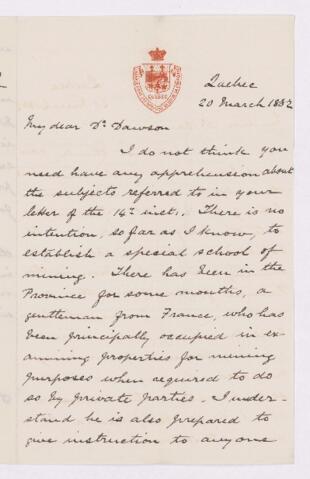 QUEBEC
Quebec
20 March 1882
My dear Dr Dawson
I do not think you
need have any apprehension about
the subjects referred to in your
letter of the 14th inst. There is no
intention, so far as I know, to
establish a special school of
mining. There has been in the
Province for some months, a
gentleman from France, who has
been principally occupied in ex-
amining properties for mining
purposes when required to do
so by private parties. I under-
stand he is also prepared to
give instruction to anyone